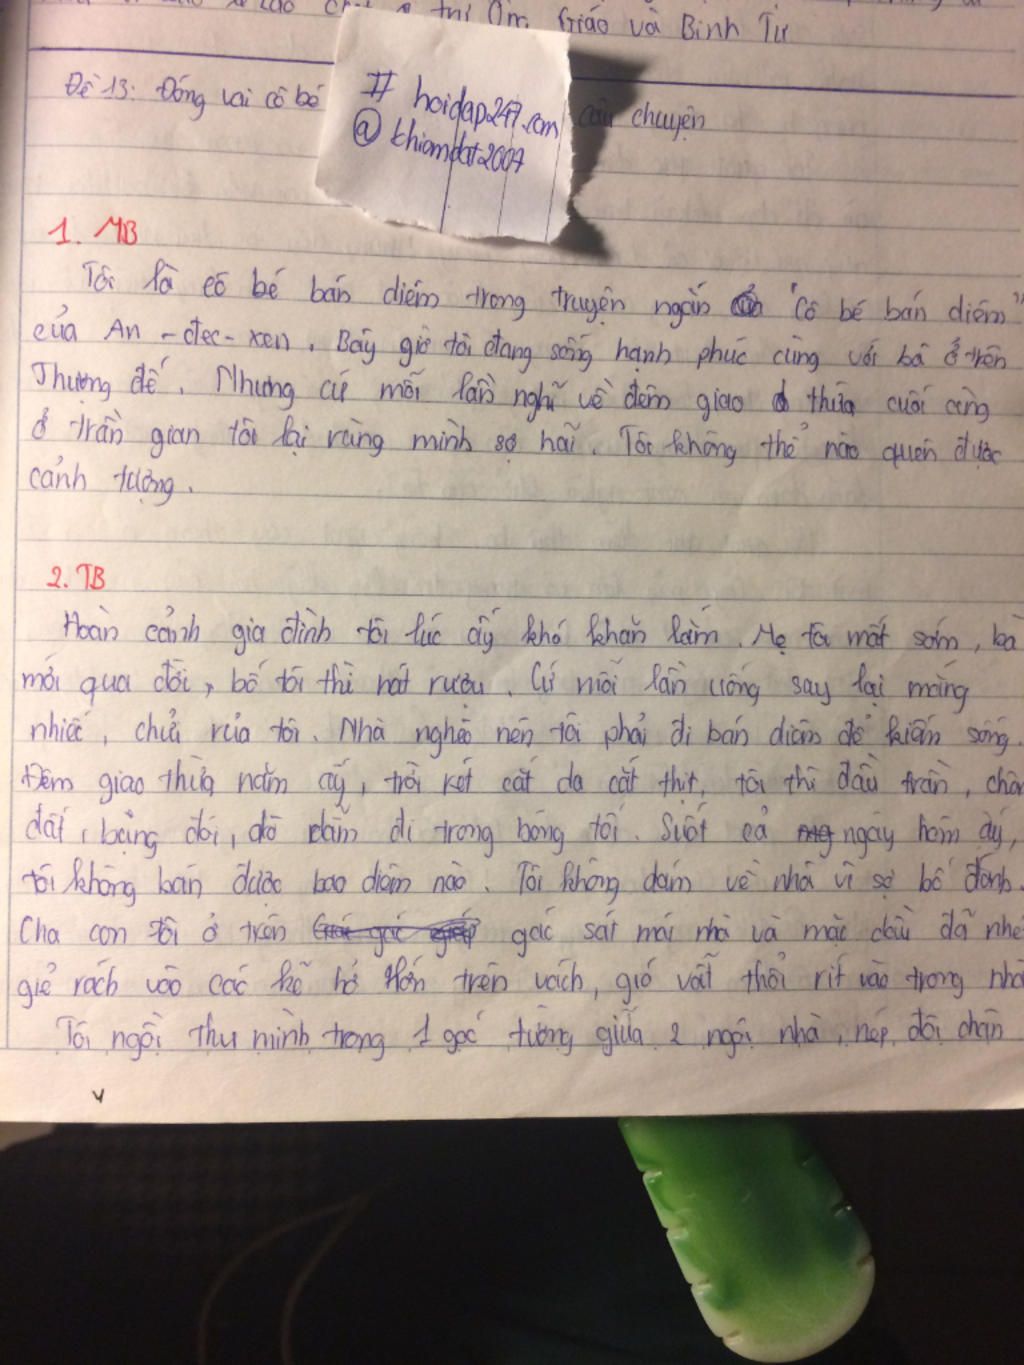 Giáo và Binh Tư
Đề 13: Đóng vai cô bé câu chuyện
# hoidap247.com
@ khiomdat2007
1. MB
Tôi là cô bé bán diêm trong truyện ngắn "Cô bé bán diêm"
của An-đec-xen. Bây giờ tôi đang sống hạnh phúc cùng với bà ở trên
Thượng đế. Nhưng cứ mỗi lần nghĩ về đêm giao thừa cuối cùng
ở trần gian tôi lại rùng mình sợ hãi. Tôi không thể nào quên được
cảnh tượng.
2. TB
Hoàn cảnh gia đình tôi lúc ấy khó khăn lắm. Mẹ tôi mất sớm, bà
mới qua đời, bố tôi thì nát rượu. Cứ mỗi lần uống say lại mắng
nhiếc, chửi rủa tôi. Nhà nghèo nên tôi phải đi bán diêm để kiếm sống.
Đêm giao thừa năm ấy, trời rét cắt da cắt thịt, tôi thì đầu trần, chân
đất, bụng đói, dò dẫm đi trong bóng tối. Suốt cả ngày hôm ấy,
tôi không bán được bao diêm nào. Tôi không dám về nhà vì sợ bố đánh.
Cha con tôi ở trên gác sát mái nhà và mặc dầu đã nhé
giẻ rách vào các kẽ hở lớn trên vách, gió vẫn thổi rít vào trong nhà
Tôi ngồi thu mình trong 1 góc tường giữa 2 ngôi nhà, nép đôi chân